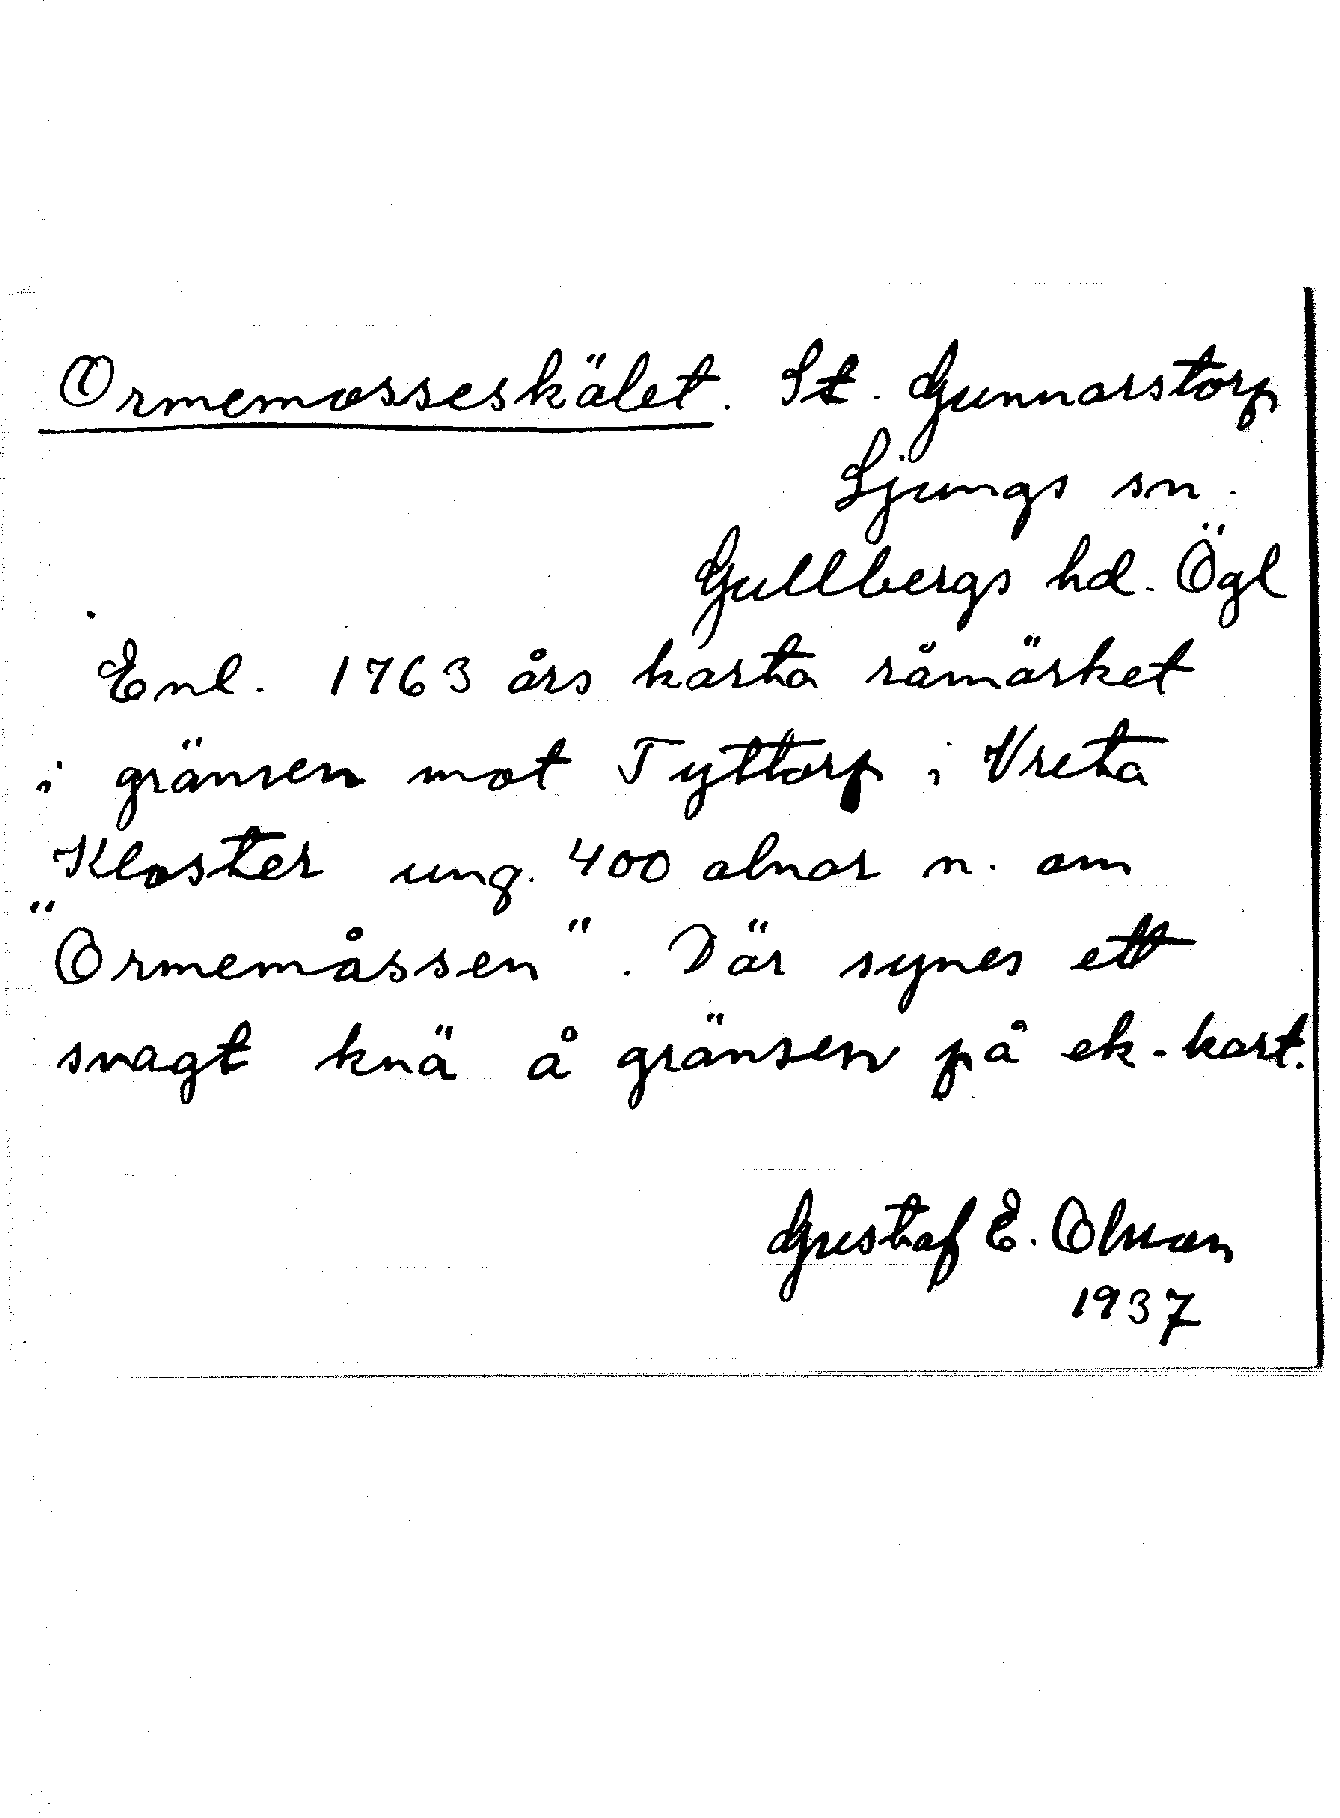 Ormemosseskälet. St. Gunnarstorp
Ljungs sn.
Gullbergs hd. Ögl
Enl. 1763 års karta råmärket
i gränsen mot Tyttorp i Vreta
Kloster ung. 400 alnar n. om
"Ormemåssen". Där synes ett
svagt knä å gränsen på ek-kart.
Gustaf E. Olsson
1937